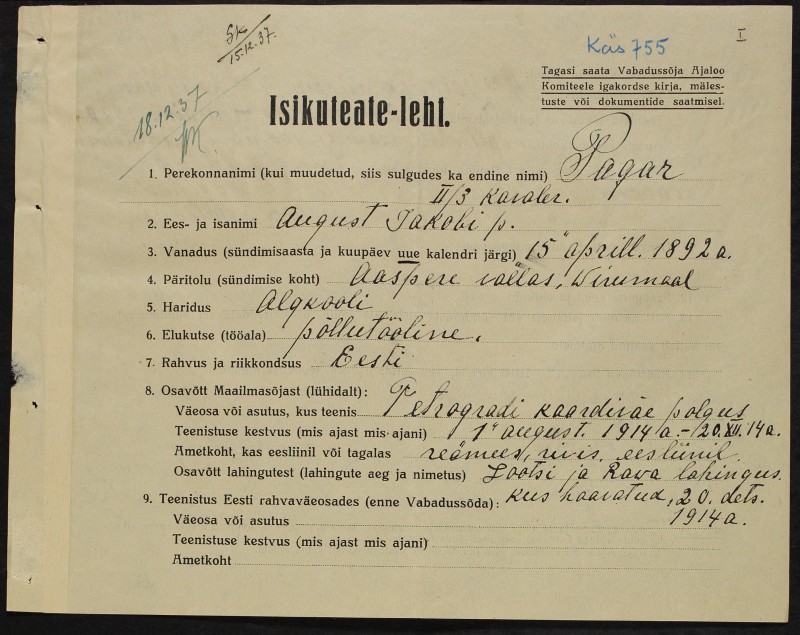 Sk
15.12.37.
Käs 755
I
Tagasi saata Vabadussõja Ajaloo
Komiteele igakordse kirja, mäles-
tuste või dokumentide saatmisel.
18.12.37
Isikuteate-leht.
1. Perekonnanimi (kui muudetud, siis sulgudes ka endine nimi) Pagar
II/3 kavaler.
2. Ees- ja isanimi August Jakobi p.
3. Vanadus (sündimisaasta ja kuupäev uue kalendri järgi) 15" aprill. 1892 a.
4. Päritolu (sündimise koht) Aaspere vallas, Wirumaal
5. Haridus Algkooli
6. Elukutse (tööala) põllutööline.
7. Rahvus ja riikkondsus Eesti
8. Osavõtt Maailmasõjast (lühidalt):
Väeosa või asutus, kus teenis Petrogradi kaardiväe polgus
Teenistuse kestvus (mis ajast mis ajani) 1" august. 1914 a. – 20. XII. 14 a.
Ametkoht, kas eesliinil või tagalas reamees, rivis, eesliinil.
Osavõtt lahingutest (lahingute aeg ja nimetus) Lootsi ja Rawa lahingus.
9. Teenistus Eesti rahvaväeosades (enne Vabadussõda): kus haavatud, 20. dets.
Väeosa või asutus 1914 a.
Teenistuse kestvus (mis ajast mis ajani)
Ametkoht